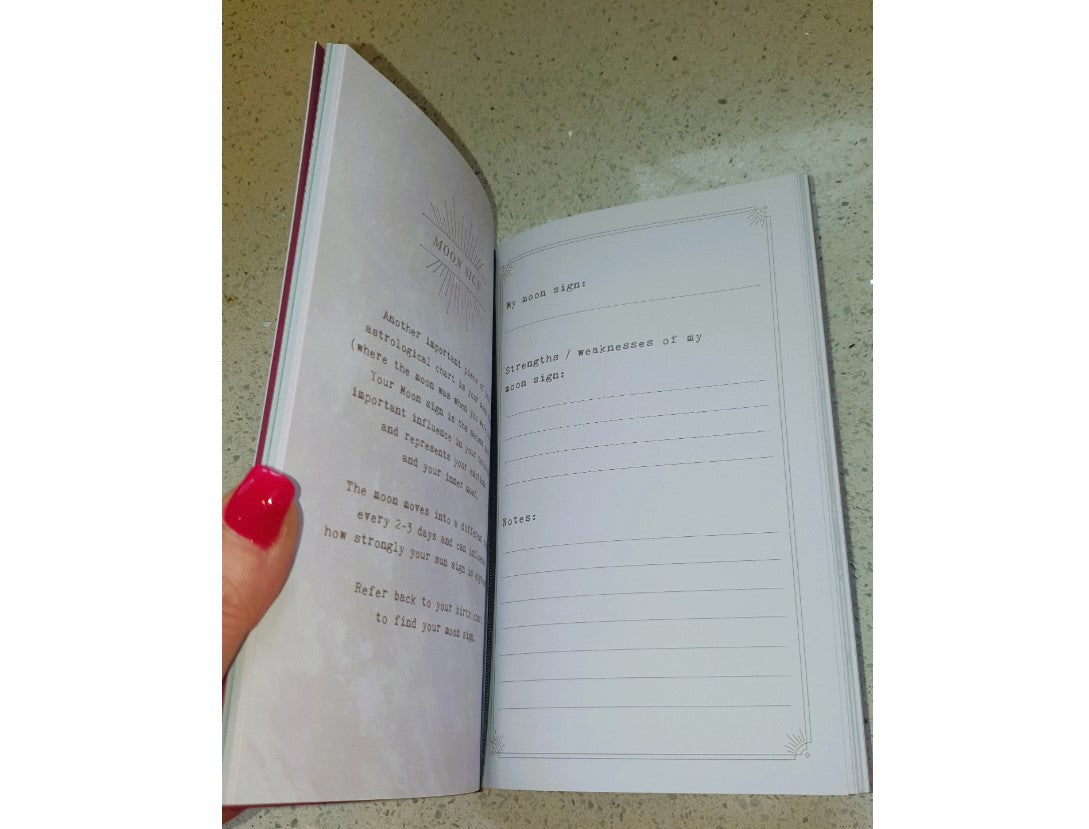 MOON SIGN
Another important piece of
astrological chart is your
(where the moon was when you were
Your Moon sign is the second
important influence in your
and represents your emotions
and your inner mood.
The moon moves into a different
every 2-3 days and can influence
how strongly your sun sign is
Refer back to your birth
to find your moon sign.
My moon sign:
Strengths / weaknesses of my
moon sign:
Notes: